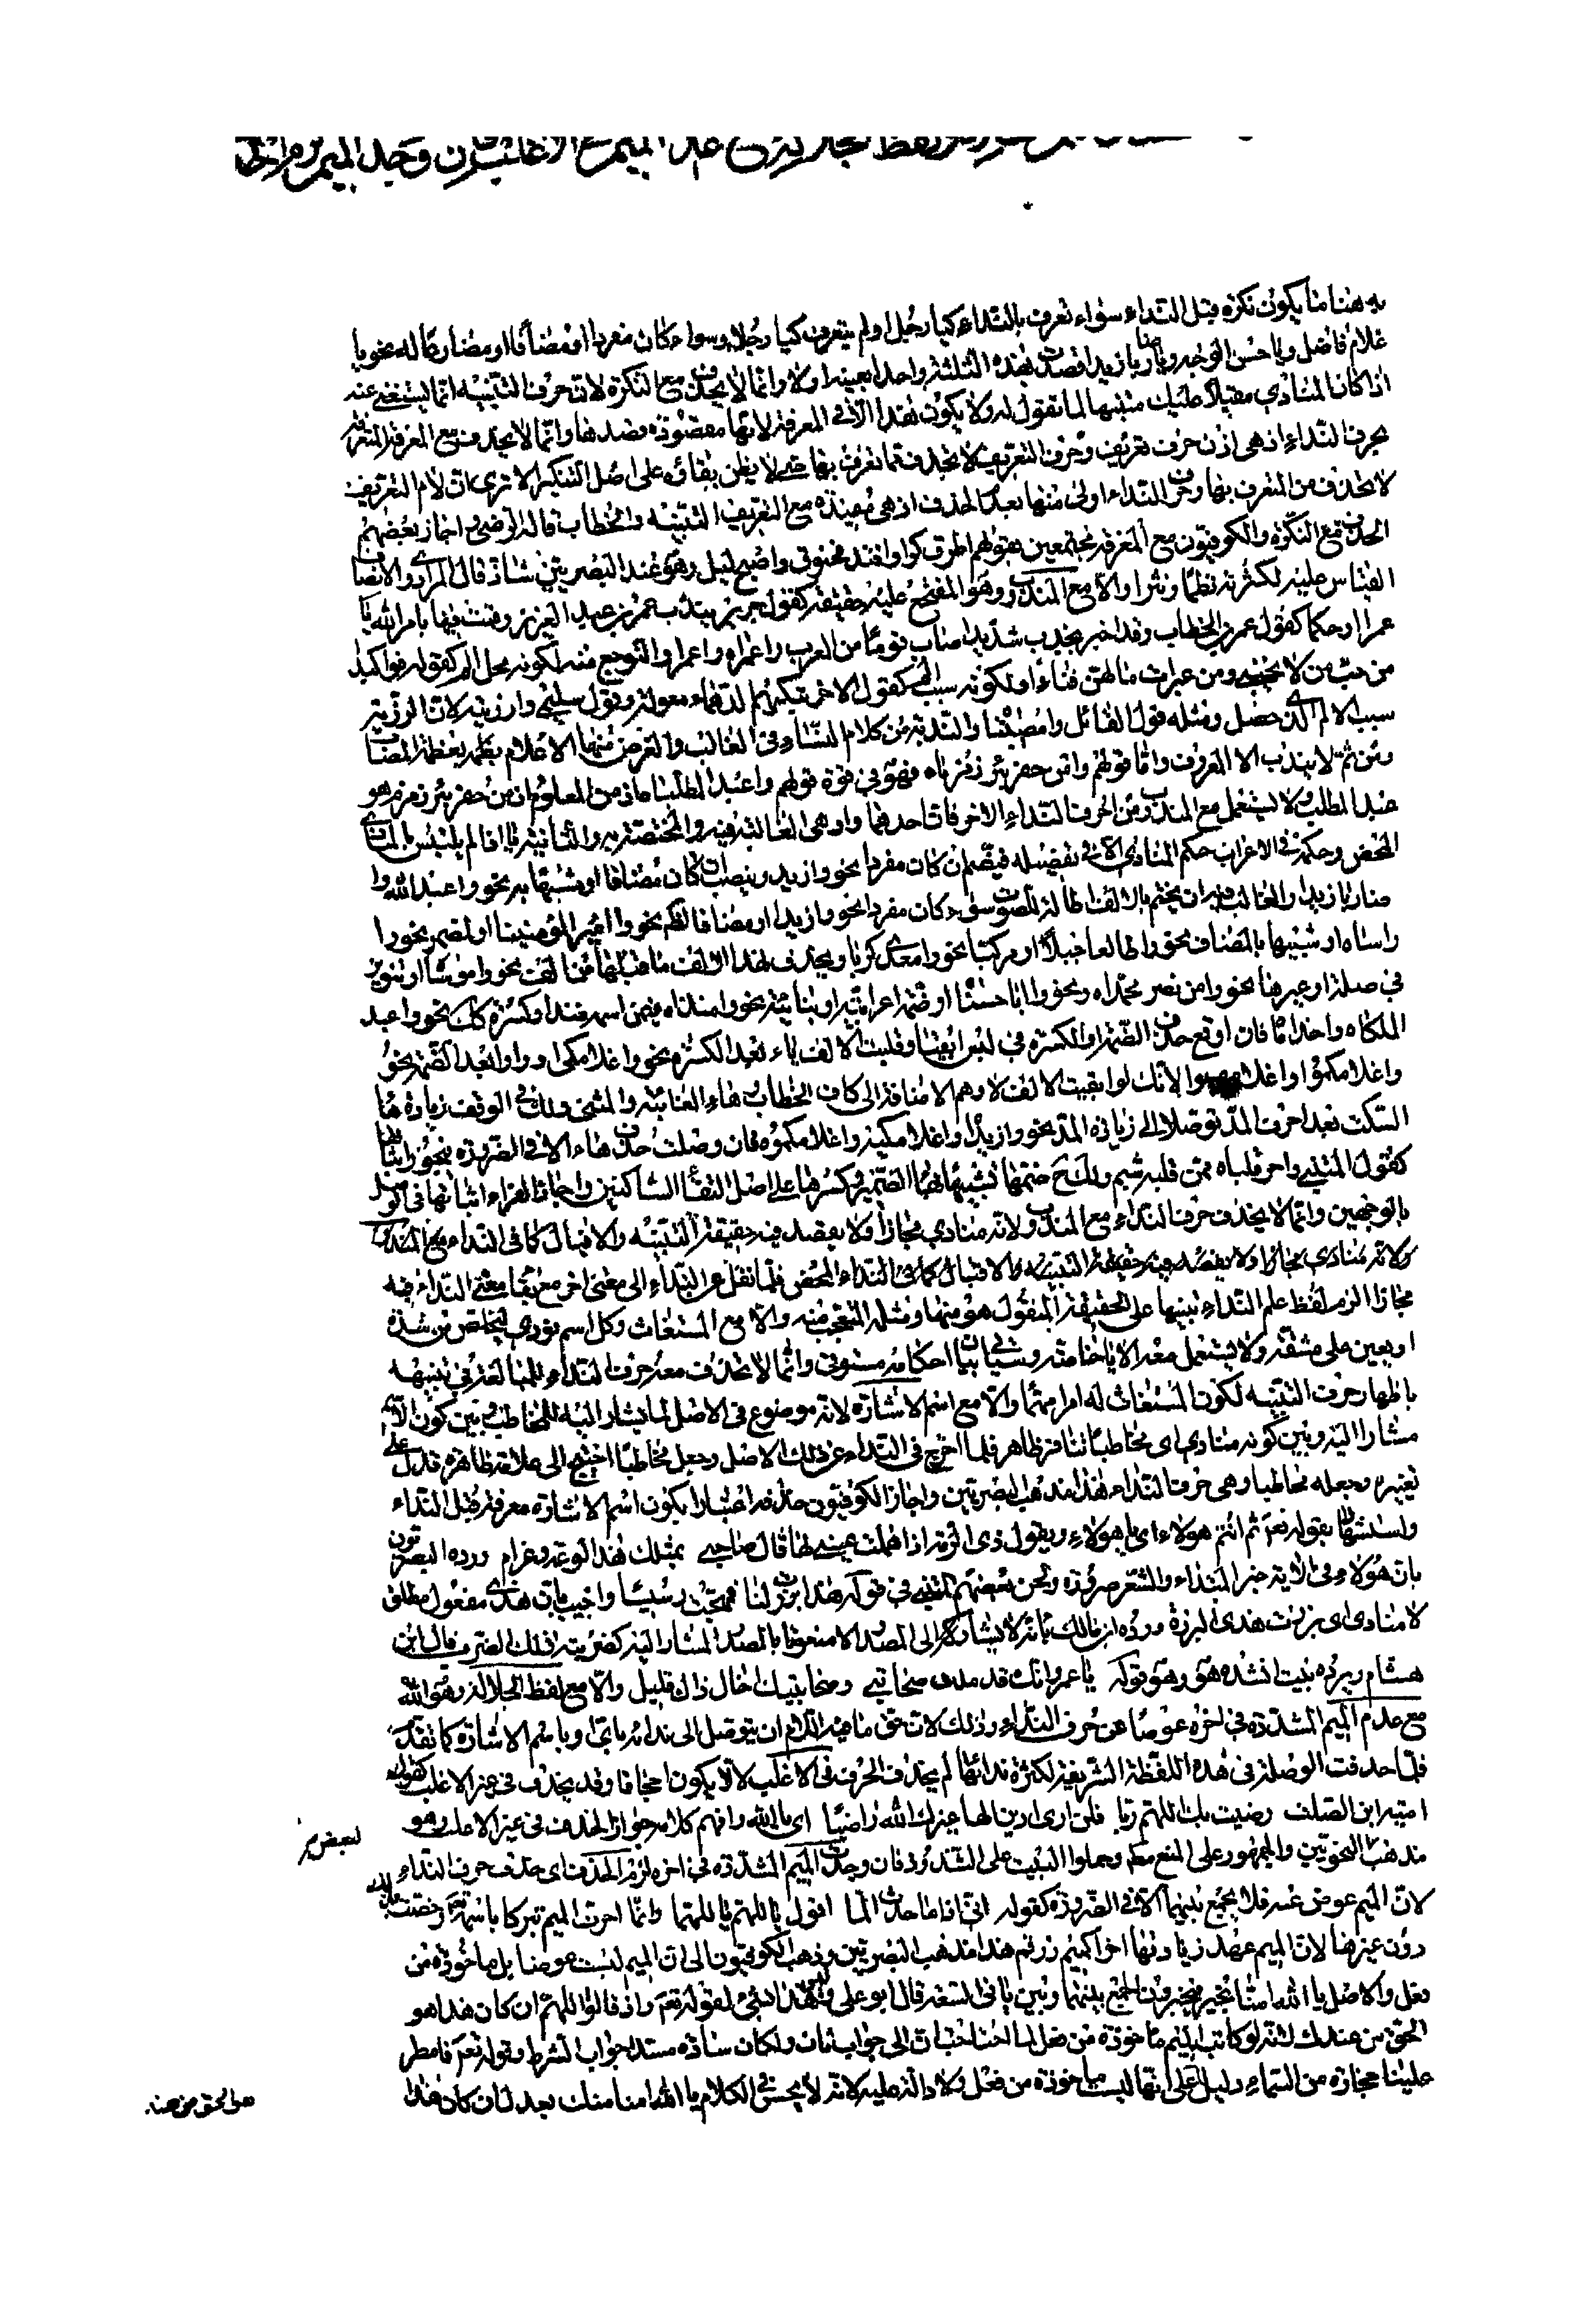 به هنا ما يكون نكرة قبل النداء سواء تعرف بالنداء كيا رجل او لم يتعرف كيا رجلا وسواء كان مفردا او مضافا او مضارعا له نحو يا
غلام فاضل ويا حسن الوجه ويا ضاربا زيدا قصدت بهذه الثلثة واحدا بعينه اولا وانما لا يحذف مع النكرة لان حرف التنبيه انما يستغنى عنه
اذا كان المنادى مقبلا عليك متنبها لما تقول له ولا يكون هذا الا في المعرفة لانها مقصودة قصدها وانما لا يحذف مع المعرفة المتعرفة
بحرف النداء اذ هي اذن حرف تعريف وحرف التعريف لا يحذف مما تعرف بها حتى لا يظن بقاؤه على اصل التنكير الا ترى ان لام التعريف
لا يحذف من المتعرف بها وحرف النداء اولى منها بعدم الحذف اذ هي مفيدة مع التعريف التنبيه والخطاب قاله الرضي واجاز بعضهم
الحذف مع النكرة والكوفيون مع المعرفة محتجين بقولهم اطرق كرا وافتد مخنوق واصبح ليل وهو عند البصريين شاذ قال المرادي والانصاف
القياس عليه لكثرته نظما ونثرا والا مع المندوب وهو المتفجع عليه حقيقة كقول جرير يندب عمر بن عبد العزيز وقمت فيها بامر الله يا
عمرا او حكما كقول عمر بن الخطاب وقد اخبر بجدب شديد اصاب قوما من العرب واعمراه واعمراه والتوجع منه لكونه محل الم كقوله فوا كبدا
من حب من لا يحبني ومن عبرات ما لهن فناء او لكونه سبب الم كقول الاخر تبكيهم الدهماء معولة وتقول سلمى وارزيتيه لان الرزية
سبب الالم الذي حصل ومثله قول القائل وامصيبتنا والندبة من كلام النساء في الغالب والغرض منها الاعلام بعظمة المصاب
ومن ثم لا يندب الا المعروف واما قولهم وامن حفر بئر زمزماه فهو في قوة قولهم واعبد المطلباه اذ من المعلوم ان من حفر بئر زمزم هو
عبد المطلب ولا يستعمل مع المندوب من احرف النداء الا حرفان احدهما وا وهي الغالبة فيه والمختصة به والثانية يا اذا لم يلتبس بالمنادى
المحض وحكمه في الاعراب حكم المنادى الآتي تفصيله فيضم ان كان مفردا نحو وا زيد وينصب ان كان مضافا او مشبها به نحو وا عبد الله وا
ضاربا زيدا والغالب فيه ان يختم بالالف اطالة للصوت سواء كان مفردا نحو وا زيدا او مضافا نحو وا امير المؤمنينا او نحو وا
راساه او شبيها بالمضاف نحو وا طالعا جبلاه او مركبا نحو وا معدي كربا ويحذف لهذا الالف ما قبلها من الف نحو وا موسا او تنوين
في صلة او غيرها نحو وا من نصر محمداه ونحو وا ابا حسنا او ضمة اعرابية او بنائية نحو وا منذاه فيمن اسمه منذ او كسرة كذلك نحو وا عبد
الملكاه وا حذاما فان اوقع حذف الضمة او الكسرة في لبس ابقيتا وقلبت الالف ياء بعد الكسرة نحو وا غلامكي او واوا بعد الضمة نحو
وا غلامهمو وا غلامكمو لانك لو ابقيت الالف لاوهم الاضافة الى كاف الخطاب وهاء الغائبة والمثنى ولك في الوقف زيادة هاء
السكت بعد احرف المد توصلا الى زيادة المد نحو وا زيداه وا غلامكيه وا غلامكموه فان وصلت حذفت هاء الا في الضرورة فيجوز اثباتها
كقول المتنبي واحر قلباه ممن قلبه شبم ولك ح ضمها تشبيها بهاء الضمير وكسرها على اصل التقاء الساكنين واجاز الفراء اثباتها في الوصل
بالوجهين وانما لا يحذف حرف النداء مع المندوب لانه منادى مجازا ولا يقصد فيه حقيقة التنبيه والاقبال كما في النداء مع المندوب
ولانه منادى مجازا ولا يقصد فيه حقيقة التنبيه والاقبال كما في النداء المحض فلما نقل عن النداء الى معنى اخر مع بقاء معنى النداء فيه
مجازا الزم لفظ علم النداء تنبيها على الحقيقة المنقول هو منها ومثله المتعجب منه والا مع المستغاث وكل اسم نودي ليخلص من شدة
او يعين على مشقة ولا يستعمل معه الا يا خاصة وسياتي بيان احكامه مستوفى وانما لا يحذف معه حرف النداء للمبالغة في تنبيهه
باظهار حرف التنبيه لكون المستغاث له امرا مهما والا مع اسم الاشارة لانه موضوع في الاصل لما يشار اليه للمخاطب وبين كون الاسم
مشارا اليه وبين كونه منادى اي مخاطبا تنافر ظاهر فلما اخرج في النداء عن ذلك الاصل وجعل مخاطبا احتيج الى علامة ظاهرة تدل على
تغييره وجعله مخاطبا وهي حرف النداء هذا مذهب البصريين واجاز الكوفيون حذفه اعتبارا بكون اسم الاشارة معرفة قبل النداء
واستشهادا بقوله تعم ثم انتم هولاء اي يا هولاء وبقول ذي الرمة اذا هملت عيني لها قال صاحبي بمثلك هذا لوعة وغرام ورده البصريون
بان هولاء في الاية خبر المبتداء والشعر ضرورة ولحن بعضهم المتنبي في قوله هذي برزت لنا فهجت رسيسا واجيب بان هذي مفعول مطلق
لا منادى اي برزت هذي البرزة ورده ابن مالك بانه لا يشار الى المصدر الا منعوتا بالمصدر المشار اليه كضربته ذلك الضرب قال ابن
هشام ويرده بيت انشده هو وهو قوله يا عمرو انك قد مللت صحابتي وصحابتيك اخال ذاك قليل والا مع لفظ الجلالة وهو الله
مع عدم الميم المشددة في اخره عوضا عن حرف النداء وذلك لان حق ما فيه اللام ان يتوصل الى ندائه باي او باسم الاشارة كما تقدم
فلما حذفت الوصلة في هذه اللفظة الشريفة لكثرة ندائها لم يحذف الحرف في الاغلب لئلا يكون اجحافا وقد يحذف في غير الاغلب كقول
امية ابن الصلت رضيت بك اللهم ربا فلن ارى ادين الها غيرك الله راضيا اي يا الله وافهم كلامه جواز الحذف في غير الاغلب وهو
مذهب لبعض النحويين والجمهور على المنع مطلقا وحملوا البيت على الشذوذ فان وجدت الميم المشددة في اخره لزم الحذف اي حذف حرف النداء
لان الميم عوض عنه فلا يجمع بينهما الا في الضرورة كقوله اني اذا ما حدث الما اقول يا اللهم يا اللهما وانما اخرت الميم تبركا باسمه تعم وخصت بذلك
دون غيرها لان الميم عهد زيادتها اخرا كميم زرقم هذا مذهب البصريين وذهب الكوفيون الى ان الميم ليست عوضا بل ماخوذة من
فعل والاصل يا الله امنا بخير فيجيزون الجمع بينهما وبين يا في السعة قال ابو علي وليس هذا بشيء لقوله تعم واذ قالوا اللهم ان كان هذا هو
الحق من عندك لانه لو كانت الميم ماخوذة من فعل لما احتاجت ان الى جواب ثان ولكان ساده مسد الجواب الشرط وقوله تعم فامطر
علينا حجارة من السماء دليل على انها ليست ماخوذة من فعل ولا دالة عليه لانه لا يحسن في الكلام يا الله امنا منك بعد ان كان هذا
هو الحق من عند